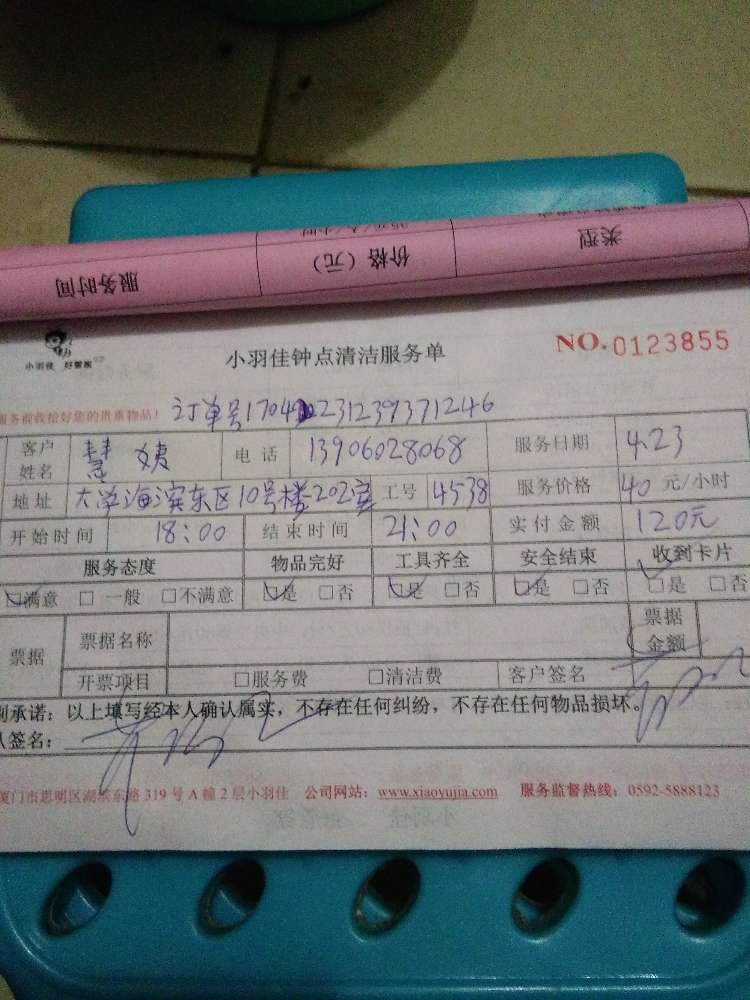 类型 价格（元） 服务时间
小羽佳 好管家
小羽佳钟点清洁服务单 NO. 0123855
服务前收检好您的贵重物品！ 订单号
客户姓名 慧姨 电话 13906028068 服务日期 4.23
地址 大学海滨东区10号楼202室 工号 4538 服务价格 40 元/小时
开始时间 18:00 结束时间 21:00 实付金额 120元
服务态度 物品完好 工具齐全 安全结束 收到卡片
☑满意 □一般 □不满意 ☑是 □否 ☑是 □否 ☑是 □否 ☑是 □否
票据 票据名称 票据金额
开票项目 □服务费 □清洁费 客户签名
承诺：以上填写经本人确认属实，不存在任何纠纷，不存在任何物品损坏。
人签名：
厦门市思明区湖滨东路319号A幢2层小羽佳 公司网站：www.xiaoyujia.com 服务监督热线：0592-5888123